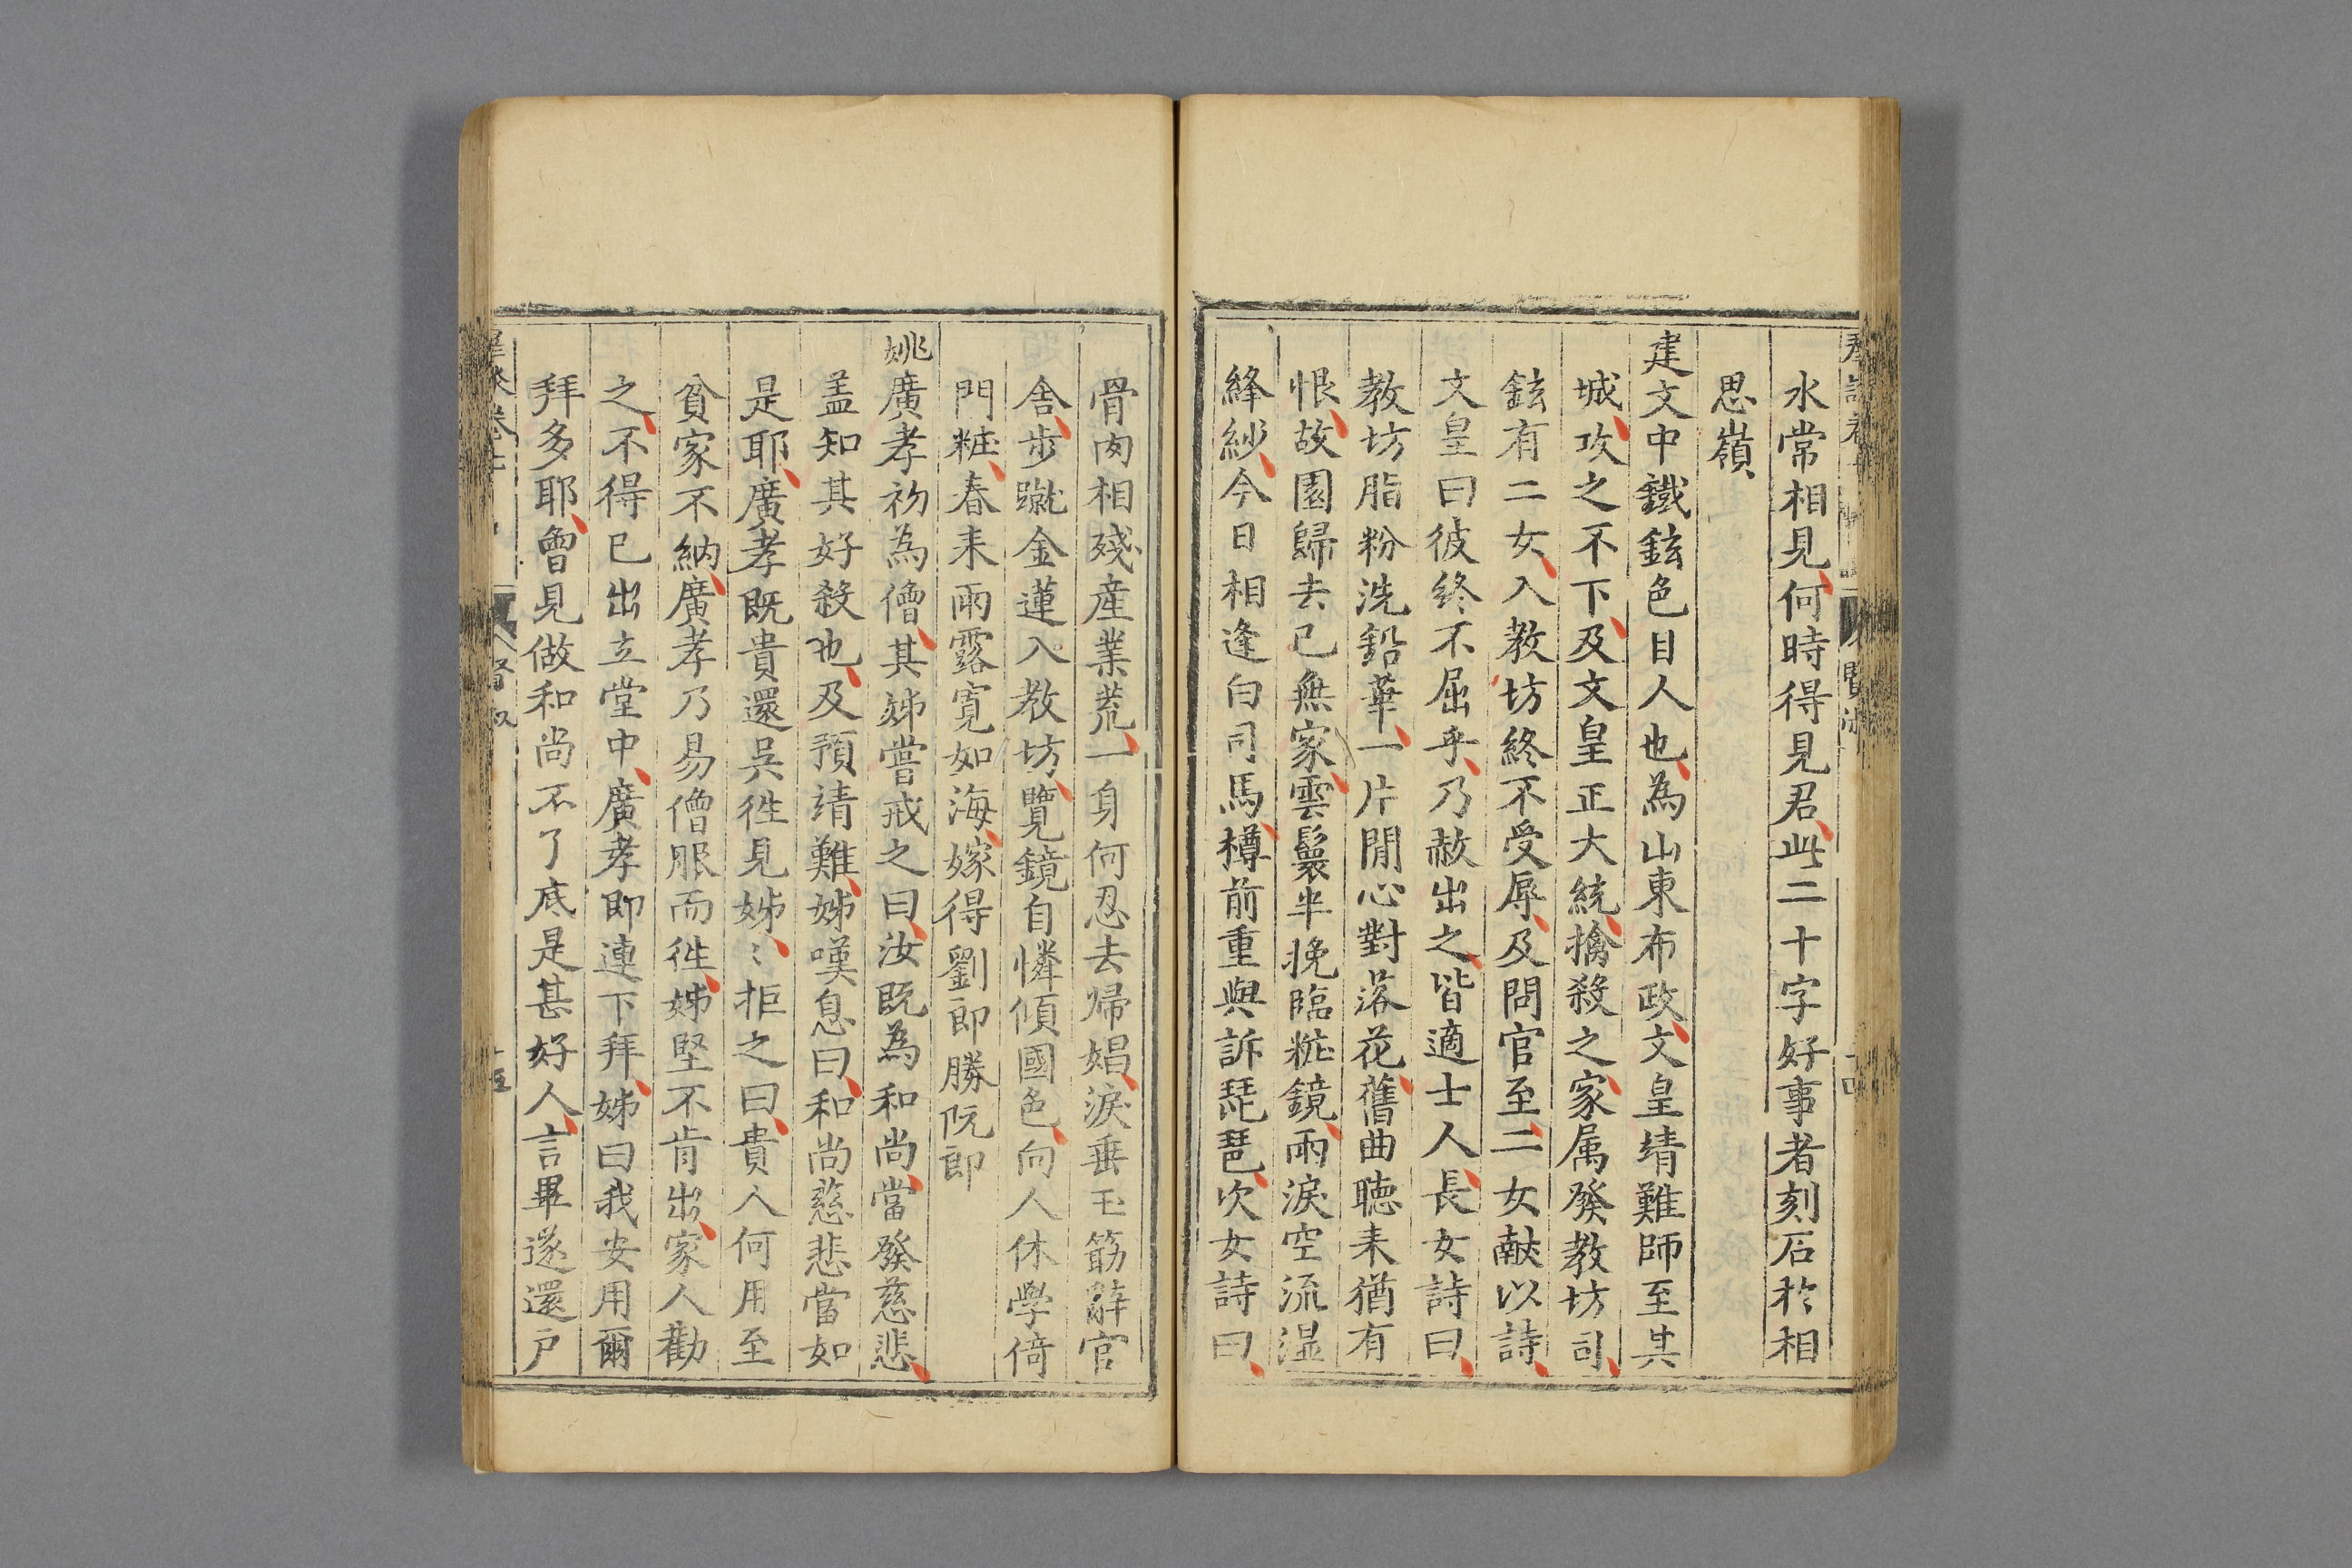 水常相見何時得見君此二十字好事者刻石於相
思嶺
建文中鐵鉉色目人也為山東布政文皇靖難師至其
城攻之不下及文皇正大統擒殺之家属發教坊司
鉉有二女入教坊終不受辱及問官至二女献以詩
文皇曰彼终不屈乎乃赦出之皆適士人長女詩曰
教坊脂粉洗鉛華一片閒心對落花舊曲聴来猶有
恨故園歸去已無家雲鬟半挽臨粧鏡兩淚空流湿
絳紗今日相逢白司馬樽前重與訴琵琶次女詩曰
骨肉相殘産業荒一身何忍去歸娼淚垂玉筯辭官
舎步蹴金蓮入教坊覽鏡自憐傾國色向人休學倚
門粧春来雨露寛如海嫁得劉郎勝阮郎
姚廣孝初為僧其姊嘗戒之曰汝既為和尚當發慈悲
盖知其好殺也及預靖難姊嘆息曰和尚慈悲當如
是耶廣孝既貴還吳往見姊〻拒之曰貴人何用至
貧家不納廣孝乃易僧服而往姊堅不肯出家人勸
之不得已出立堂中廣孝即連下拜姊曰我安用爾
拜多耶曾見做和尚不了底是甚好人言畢遂還戸